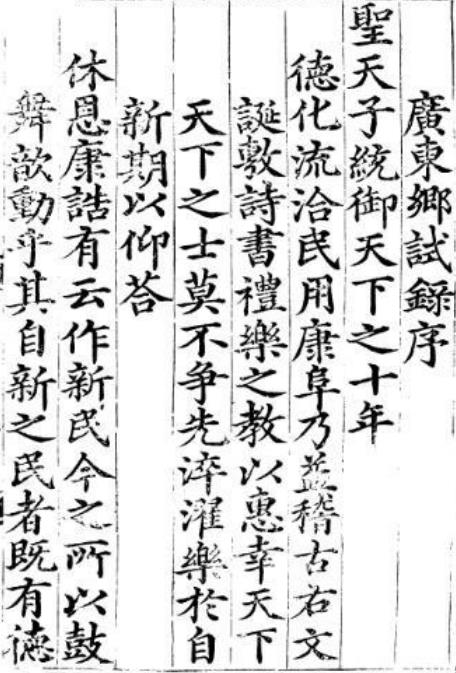 廣東鄉試錄序
聖天子統御天下之十年
德化流洽民用康阜乃益稽古右文
誕敷詩書禮樂之教以惠幸天下
天下之士莫不争先淬濯樂於自
新期以仰荅
休恩康誥有云作新民今之所以鼓
舞歆動乎其自新之民者既有德